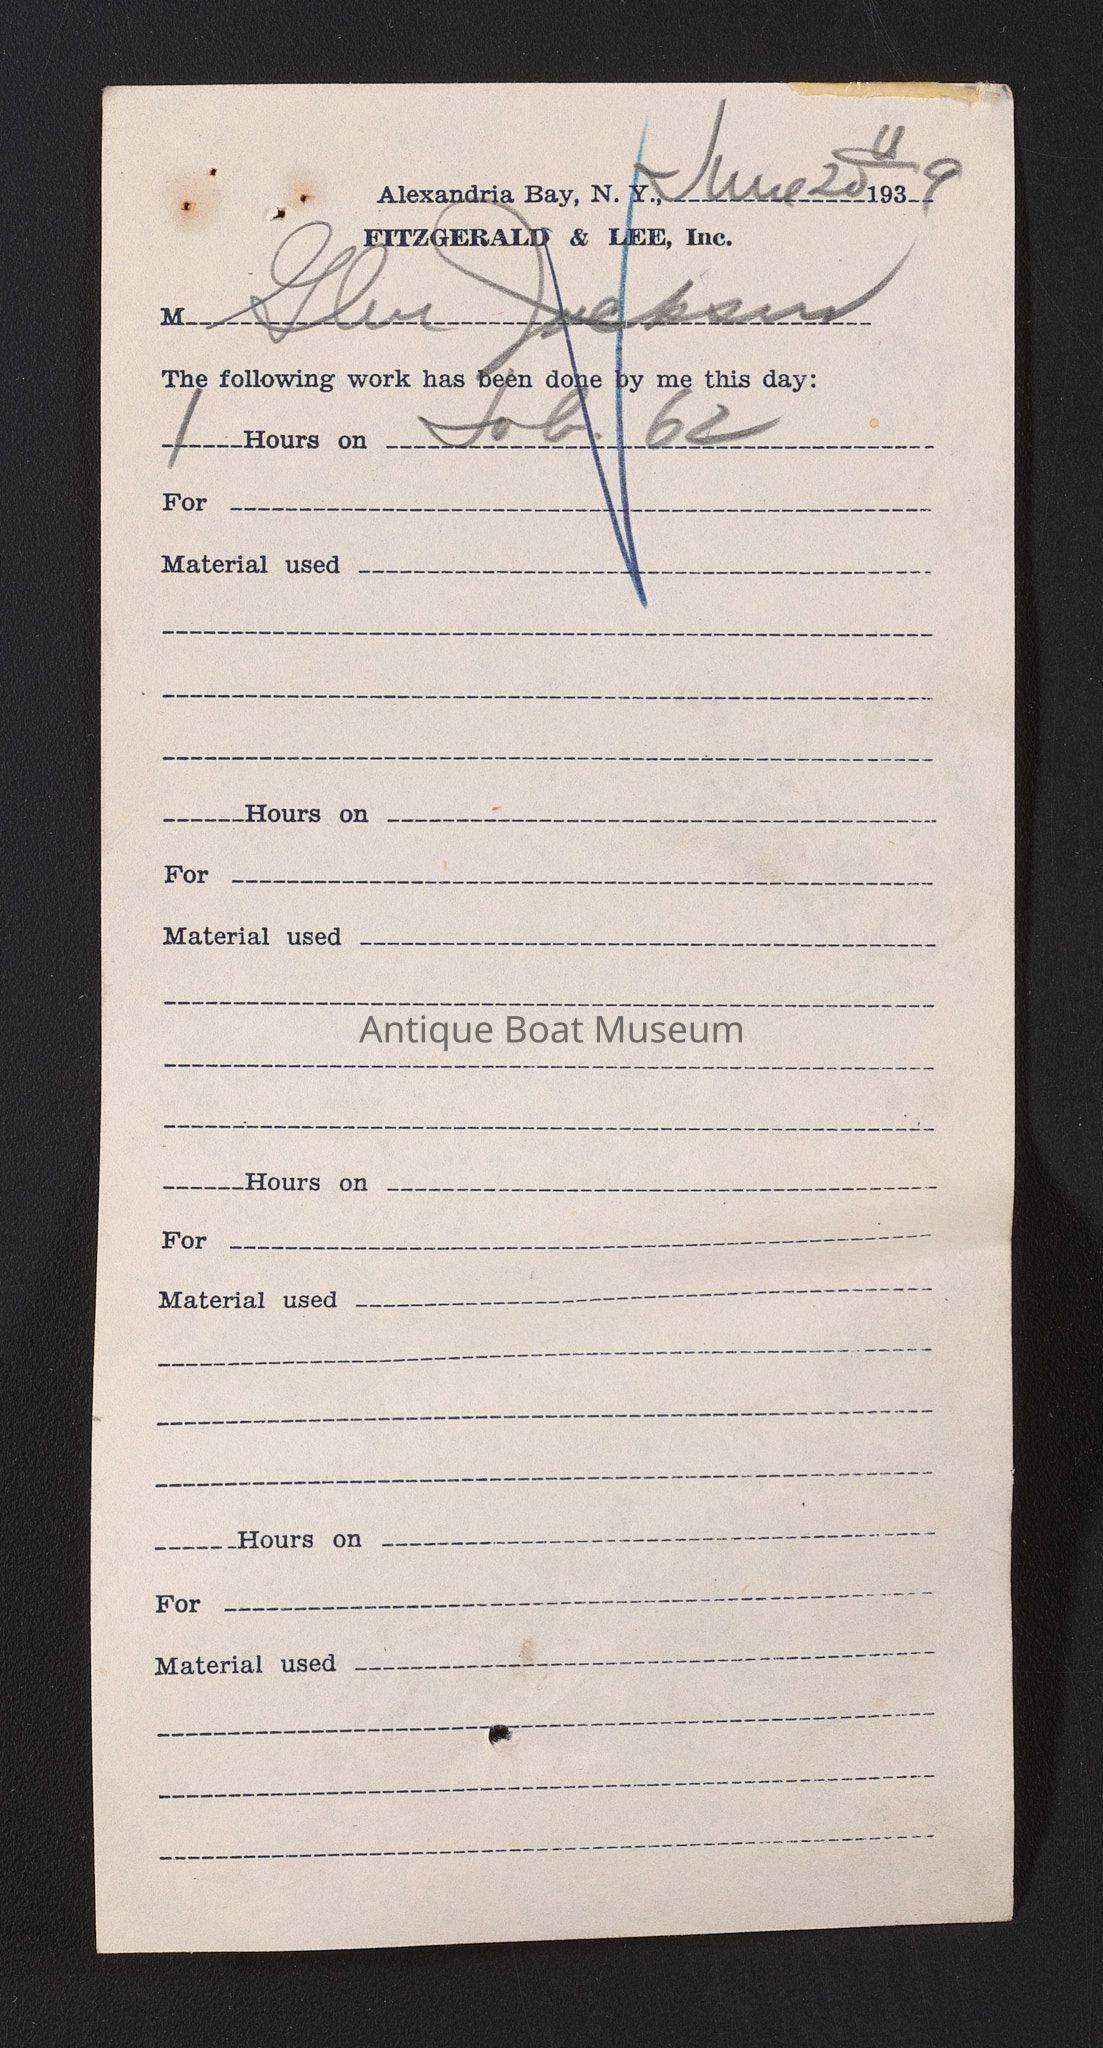 Alexandria Bay, N. Y., June 20 1939
FITZGERALD & LEE, Inc.
M Glen Jackson
The following work has been done by me this day:
1 Hours on Job. 62
For
Material used
Hours on
For
Material used
Antique Boat Museum
Hours on
For
Material used
Hours on
For
Material used